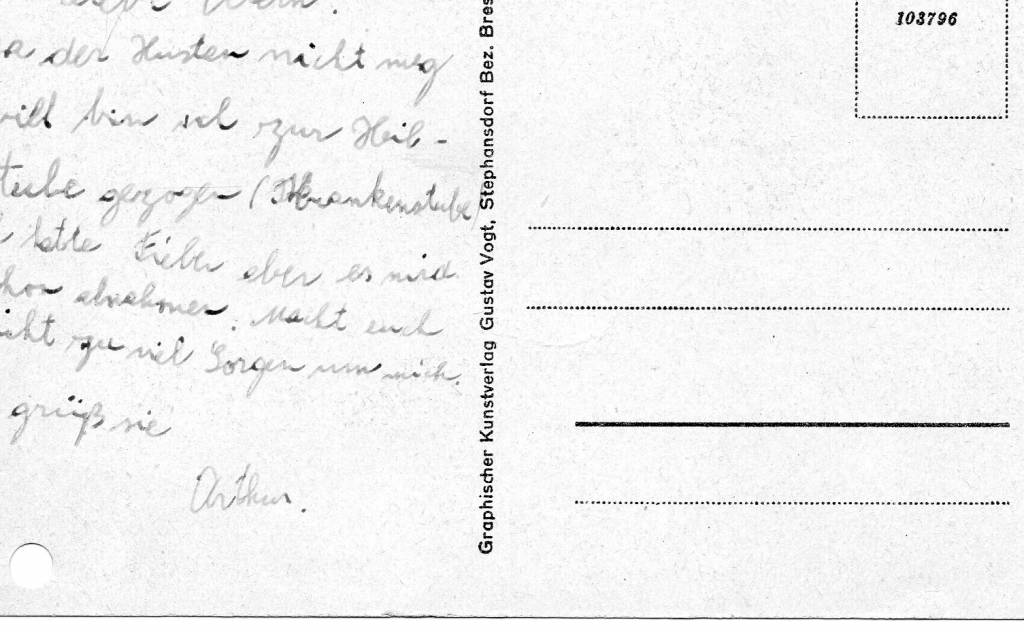 der Husten nicht weg
will bin ich zur Heil-
stube gezogen (Krankenstube)
hatte Fieber aber es wird
schon abnehmen. Macht euch
nicht zu viel Sorgen um mich.
grüß sie
Arthur.
Graphischer Kunstverlag Gustav Vogt, Stephansdorf Bez. Bres
103796